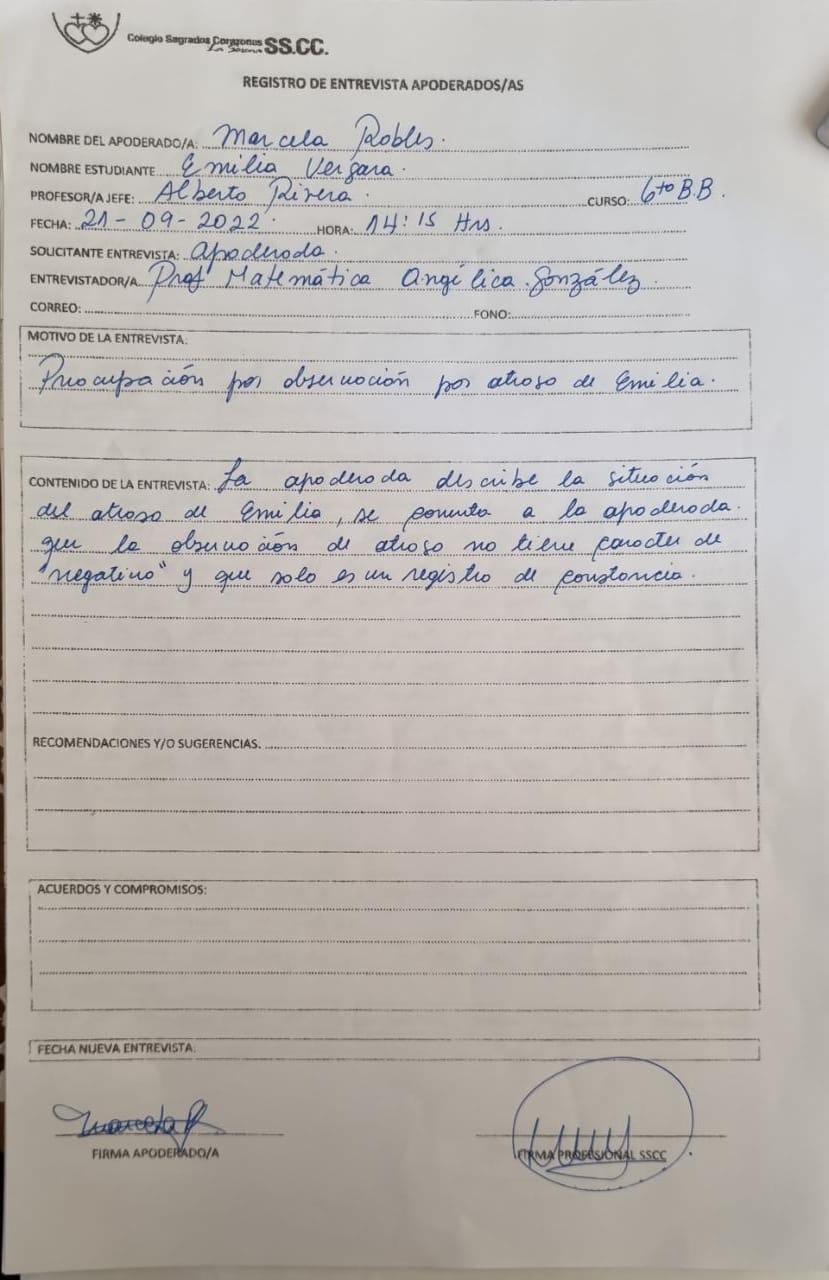 Colegio Sagrados Corazones SS.CC.
La Serena
REGISTRO DE ENTREVISTA APODERADOS/AS
NOMBRE DEL APODERADO/A: Marcela Robles.
NOMBRE ESTUDIANTE Emilia Vergara.
PROFESOR/A JEFE: Alberto Rivera. CURSO: 6to B.B.
FECHA: 21-09-2022. HORA: 14:15 Hrs.
SOLICITANTE ENTREVISTA: Apoderada.
ENTREVISTADOR/A Prof Matemática Angélica González.
CORREO: FONO:
MOTIVO DE LA ENTREVISTA:
Preocupación por observación por atraso de Emilia.
CONTENIDO DE LA ENTREVISTA: La apoderada describe la situación
del atraso de Emilia, se comenta a la apoderada
que la observación de atraso no tiene caracter de
"negativo" y que solo es un registro de constancia.
RECOMENDACIONES Y/O SUGERENCIAS.
ACUERDOS Y COMPROMISOS:
FECHA NUEVA ENTREVISTA:
Marcela R
FIRMA APODERADO/A FIRMA PROFESIONAL SSCC